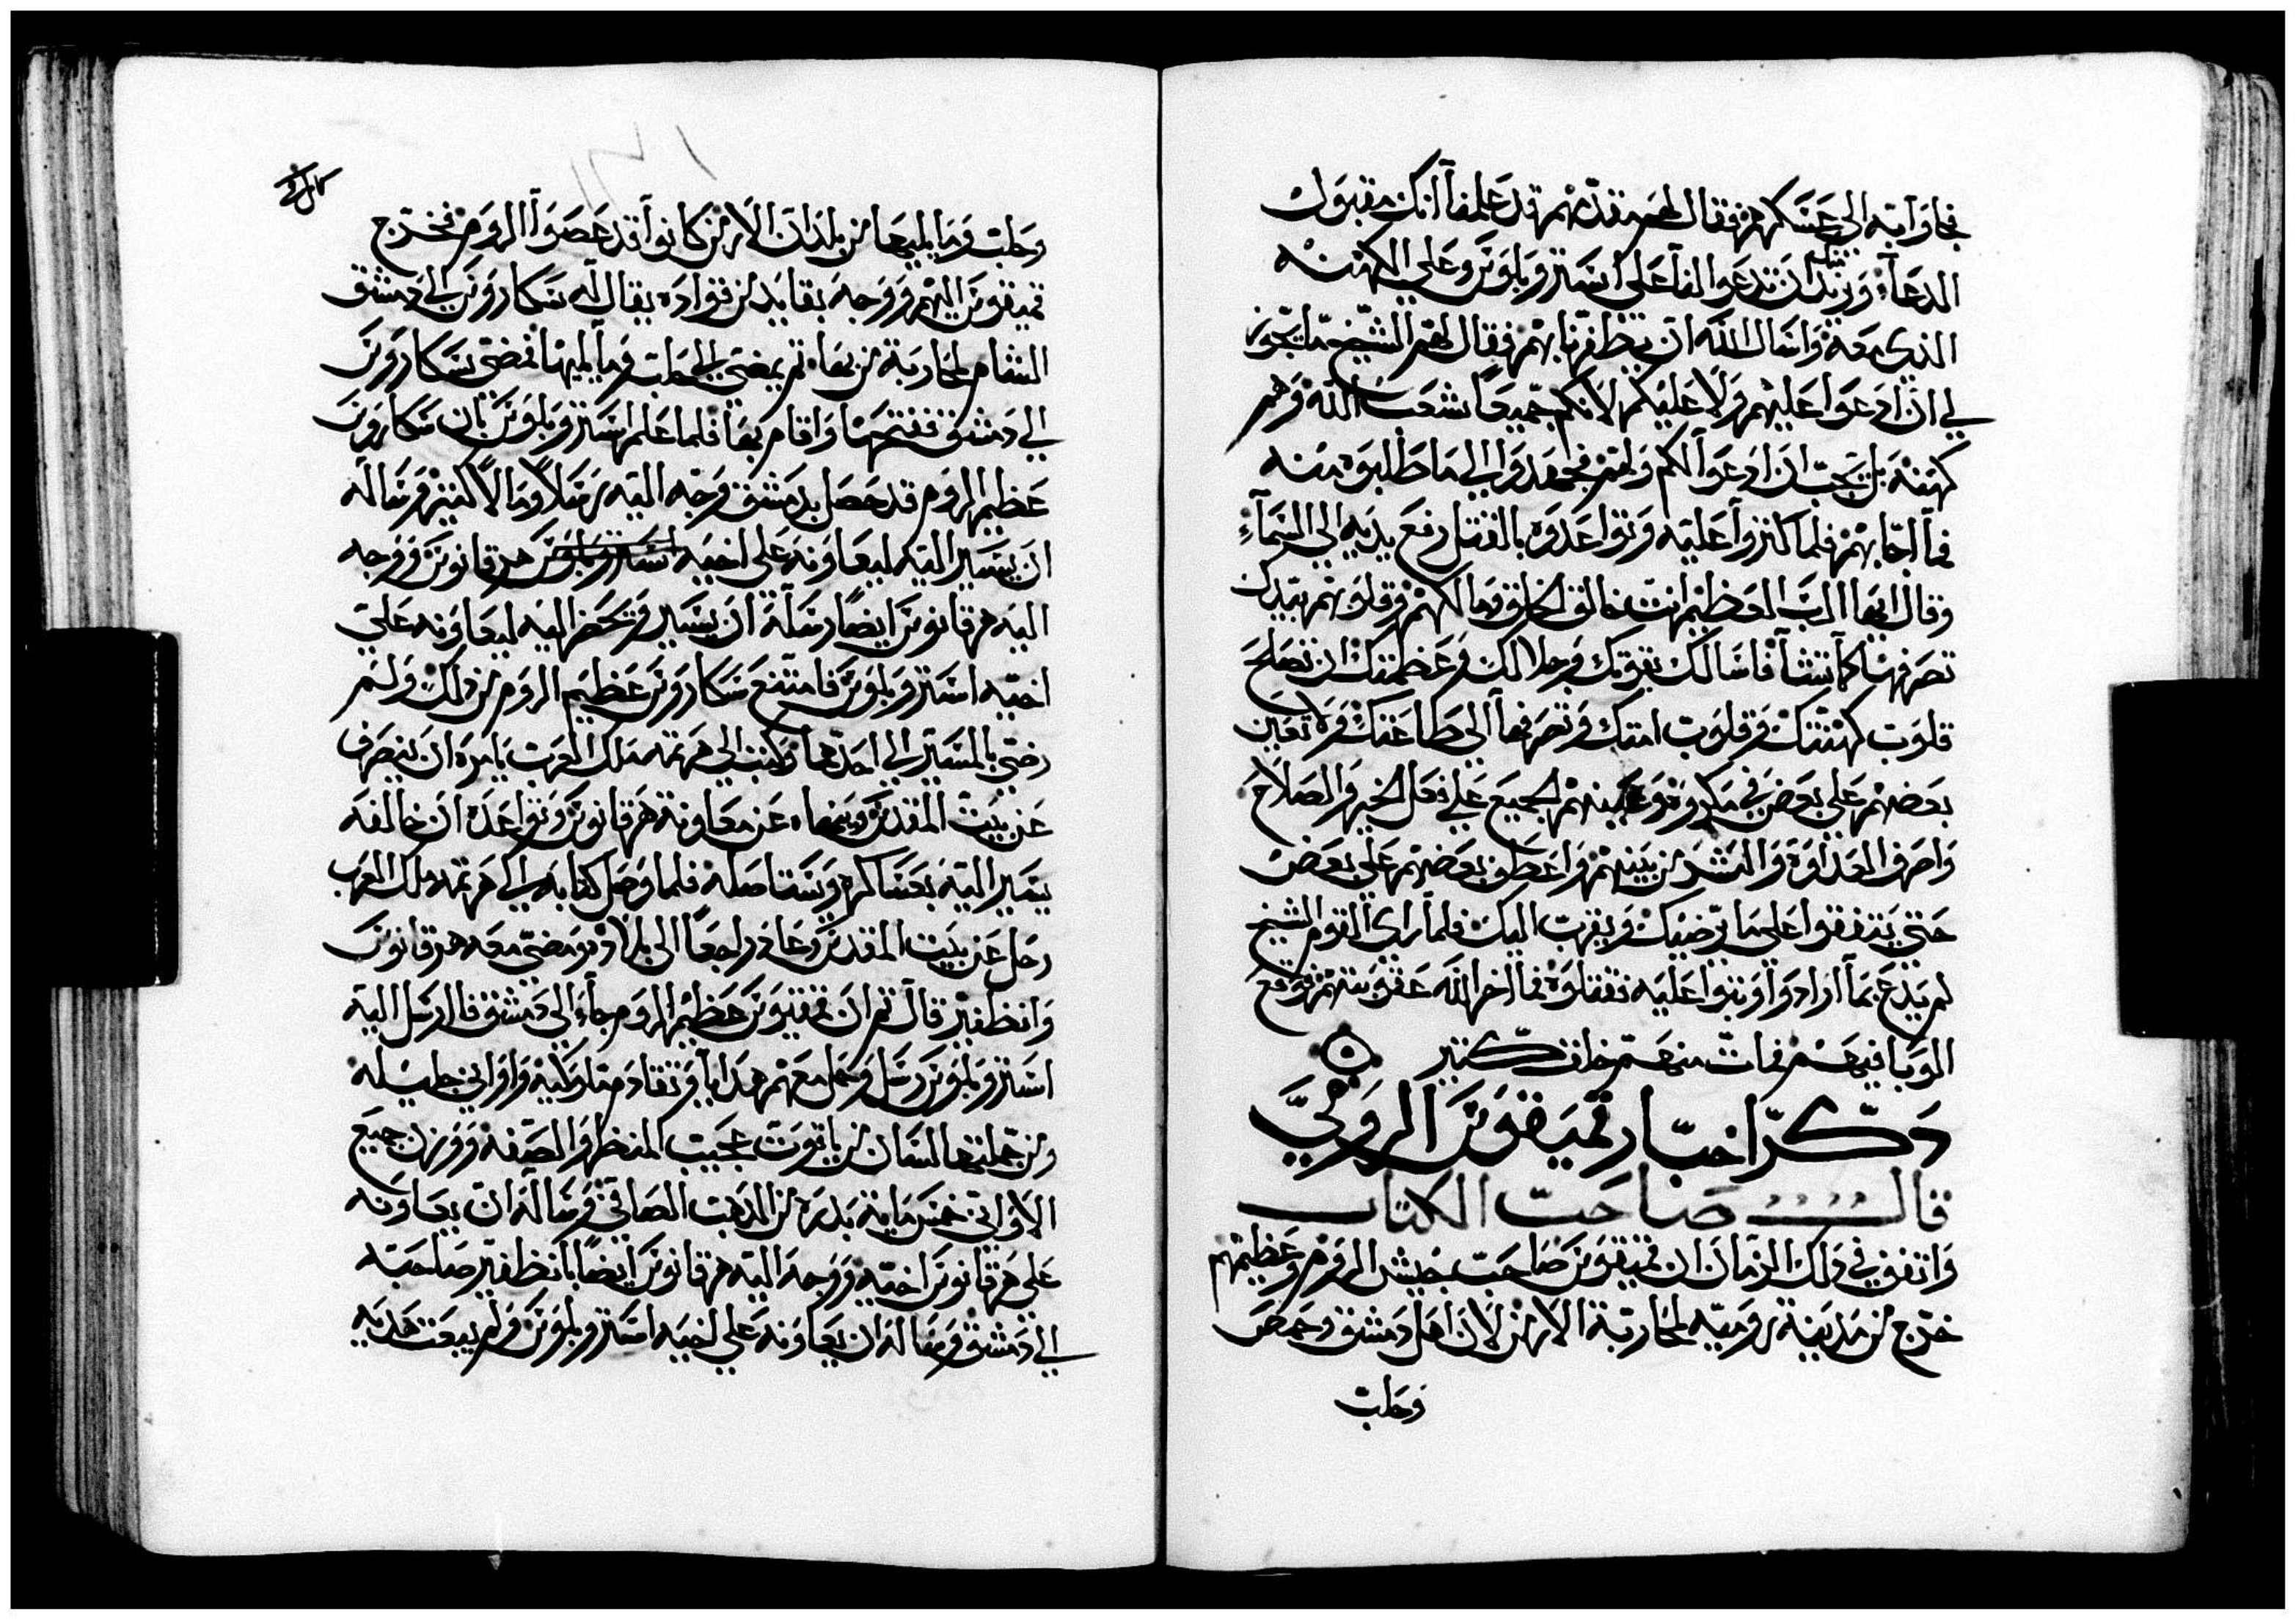 فجاوا به الى عسكرهم فقال لهم مقدمهم قد علمنا انك مقبول
الدعاء ونريد منك ان تدعوا لنا على استروبلوس وعلى الكهنه
الذي معه واسال الله ان يظفرنا بهم فقال لهم الشيخ ما يجوز
لي ان ادعوا عليهم ولا عليكم لانكم جميعا شعب الله وهم
كهنته بل يجب ان ادعوا لكم ولهم فجهدوا الي ما طلبوه منه
فما اجابهم فلما اكثروا عليه وتواعدوه بالقتل رفع يديه الى السماء
وقال ايها الرب العظيم انت خالق الخلق ومالكهم وقلوبهم بيدك
تصرفها كما تشا فاسالك بقوتك وجلالك وعظمتك ان تصلح
قلوب كهنتك وقلوب امتك وتصرفها الى طاعتك ولا تعين
بعضهم على بعض في مكروه وعينهم الجميع علي فعل الخير والصلاح
واصرف العداوة والشر من بينهم واعطف بعضهم على بعض
حتى يتفقوا على ما يرضيك ويقرب اليك فلما راى القوم الشيخ
لم يدع بما ارادوا وثبوا عليه فقتلوه فما اخر الله عقوبتهم فوقع
الوبا فيهم فمات منهم خلق كثير
ذكر اخبار قميفوس الرومي
قال صاحب الكتاب
واتفق في ذلك الزمان ان قميفوس صاحب جيش الروم وعظيمهم
خرج من مدينة روميه لمحاربة الارمن لان اهل دمشق وحمص
وحلب
وحلب وما يليها من بلدان الارمن كانوا قد عصوا الروم فخرج
قميفوس اليهم ووجه بقايد من قواده يقال له سكاروس الي دمشق
الشام لمحاربة من بها ثم يمضي الي حلب وما يليها فمضى سكاروس
الي دمشق ففتحها واقام بها فلما علم استروبلوس بان سكاروس
عظيم الروم قد حصل بدمشق وجه اليه رسلا ومالا كثير وساله
ان يسير اليه ليعاونه على اخيه استروبلوس هرقانوس ووجه
اليه هرقانوس ايضا رسلة ان يسير ويحضر اليه ليعاونه علي
اخيه استروبلوس فامتنع سكاروس عظيم الروم من ذلك ولم
رضي بالمسير الي احدهما وكتب الي هرتمه ملك العرب يامره ان ينصرف
عن بيت المقدس وينهاه عن معاونة هرقانوس وتواعده ان خالفه
يسير اليه بعساكره ويستاصله فلما وصل كتابه الي هرتمه ملك العرب
رحل عن بيت المقدس وعاد راجعا الى بلاده ومضى معه هرقانوس
وانطفير قال ثم ان قميفوس عظيم الروم جاء الي دمشق فارسل اليه
استروبلوس رسل وحمل معهم هدايا وتقادم ملوكيه واواني جليله
ومن جملتها لسان من ياقوت عجيب المنظر والصفه ووزن جميع
الاواني خمس ماية بدره من الذهب الصافي وساله ان يعاونه
على هرقانوس اخيه ووجه اليه هرقانوس ايضا بانطفير صاحبه
الي دمشق وساله ان يعاونه علي اخيه استروبلوس ولم يبعث هديه